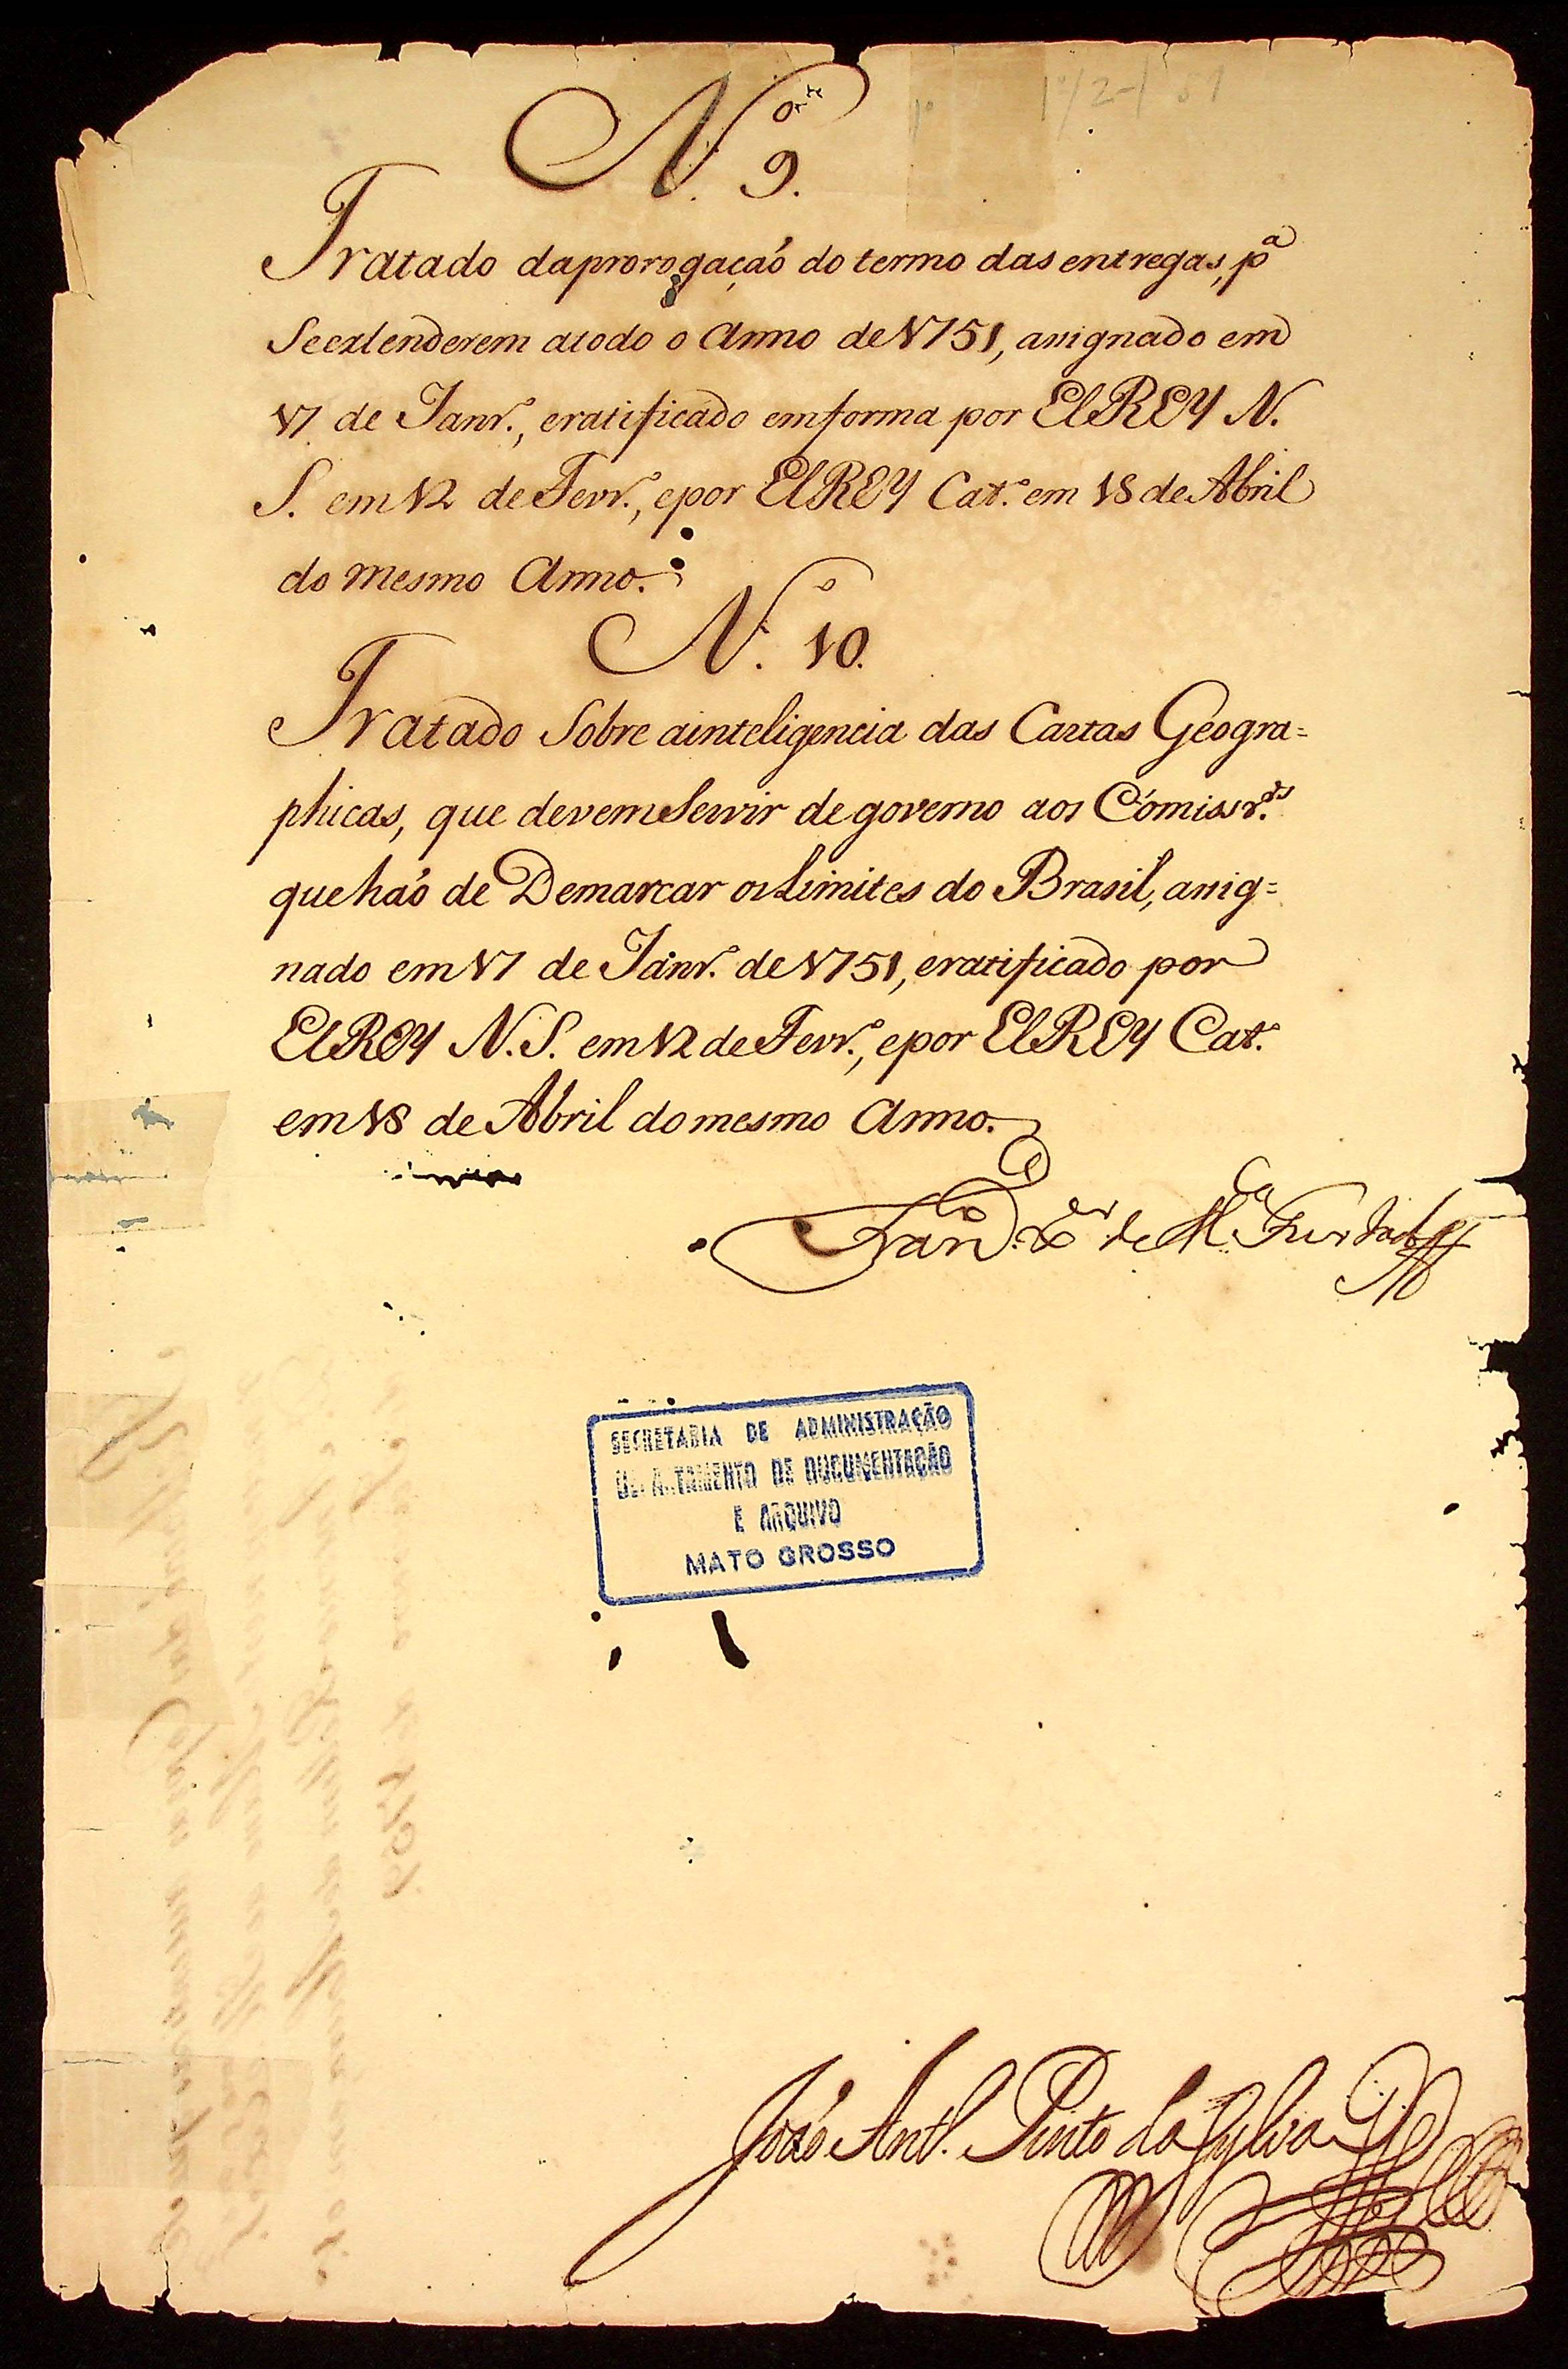 N.º 9.
Tratado daprorogaçaõ do termo das entregas, pª
Seextenderem atodo o Anno de 1751, assignado em
17 de Janr.º, eratificado emforma por ElREY N.
S. em 12 de Fevr.º, epor ElREY Cat.º em 18 de Abril
do mesmo Anno.
N.º 10.
Tratado Sobre ainteligencia das Cartas Geogra=
phicas, que devemServir de governo aos Cómissr.ºs
quehaõ de Demarcar osLimites do Brasil, assig=
nado em 17 de Janr.º de 1751, eratificado por
ElREY N. S. em 12 de Fevr.º, epor ElREY Cat.º
em 18 de Abril domesmo Anno.
Fran.co X.er de M.ça Furtado
SECRETARIA DE ADMINISTRAÇÃO
DEPARTAMENTO DE DOCUMENTAÇÃO
E ARQUIVO
MATO GROSSO
Joaõ Ant.º Pinto da Sylva